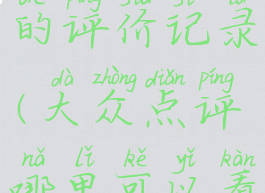 的评价记录
dà zhòng diǎn píng
(大众点评
nǎ lǐ kě yǐ kàn
哪里可以看